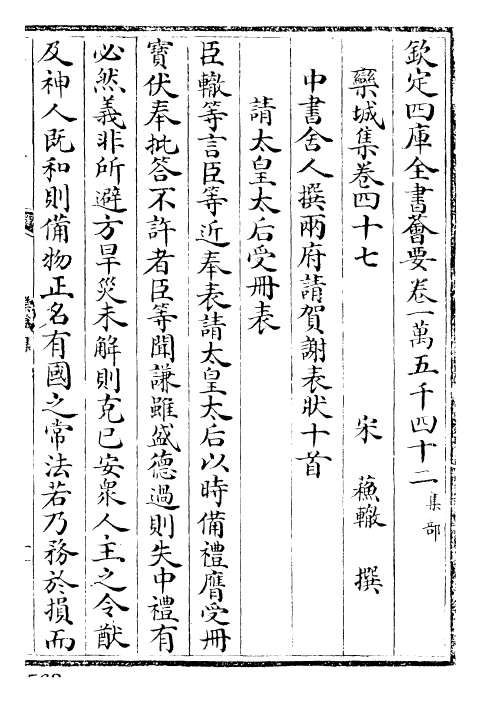 欽定四庫全書薈要卷一萬五千四十二集部
欒城集卷四十七　宋　蘓轍　撰
中書舍人撰兩府請賀謝表狀十首
請太皇太后受冊表
臣轍等言臣等近奉表請太皇太后以時備禮膺受冊
寶伏奉批答不許者臣等聞謙雖盛德過則失中禮有
必然義非所避方旱災未解則克已安衆人主之令猷
及神人既和則備物正名有國之常法若乃務於損而